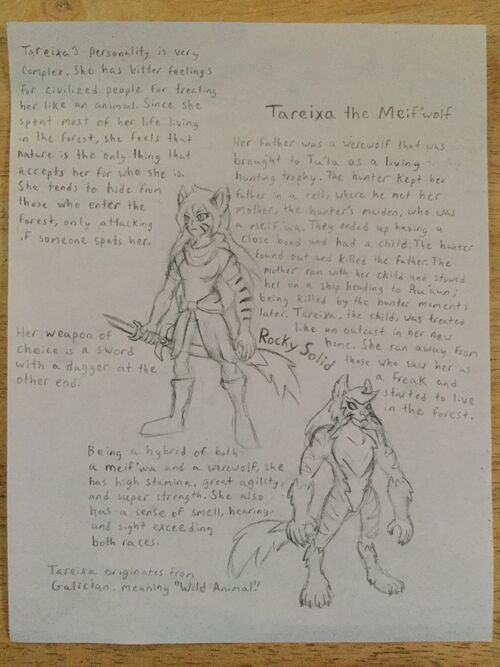 Tareixa the Meif'wolf
Tareixa's personality is very
complex. She has bitter feelings
for civilized people for treating
her like an animal. Since she
spent most of her life living
in the forest, she feels that
nature is the only thing that
accepts her for who she is.
She tends to hide from
those who enter the
forest, only attacking
if someone spots her.
Her father was a werewolf that was
brought to Tu'la as a living
hunting trophy. The hunter kept her
father in a cell, where he met her
mother, the hunter's maiden, who was
a meif'wa. They ended up having a
close bond and had a child. The hunter
found out and killed the father. The
mother ran with her child and stowed
her on a ship heading to Ru'aun;
being killed by the hunter moments
later. Tareixa, the child, was treated
like an outcast in her new
home. She ran away from
those who saw her as
a freak and
started to live
in the forest.
Her weapon of
choice is a sword
with a dagger at the
other end.
Rocky Solid
Being a hybrid of both
a meif'wa and a werewolf, she
has high stamina, great agility,
and super strength. She also
has a sense of smell, hearing,
and sight exceeding
both races.
Tareixa originates from
Galician. meaning "Wild Animal."